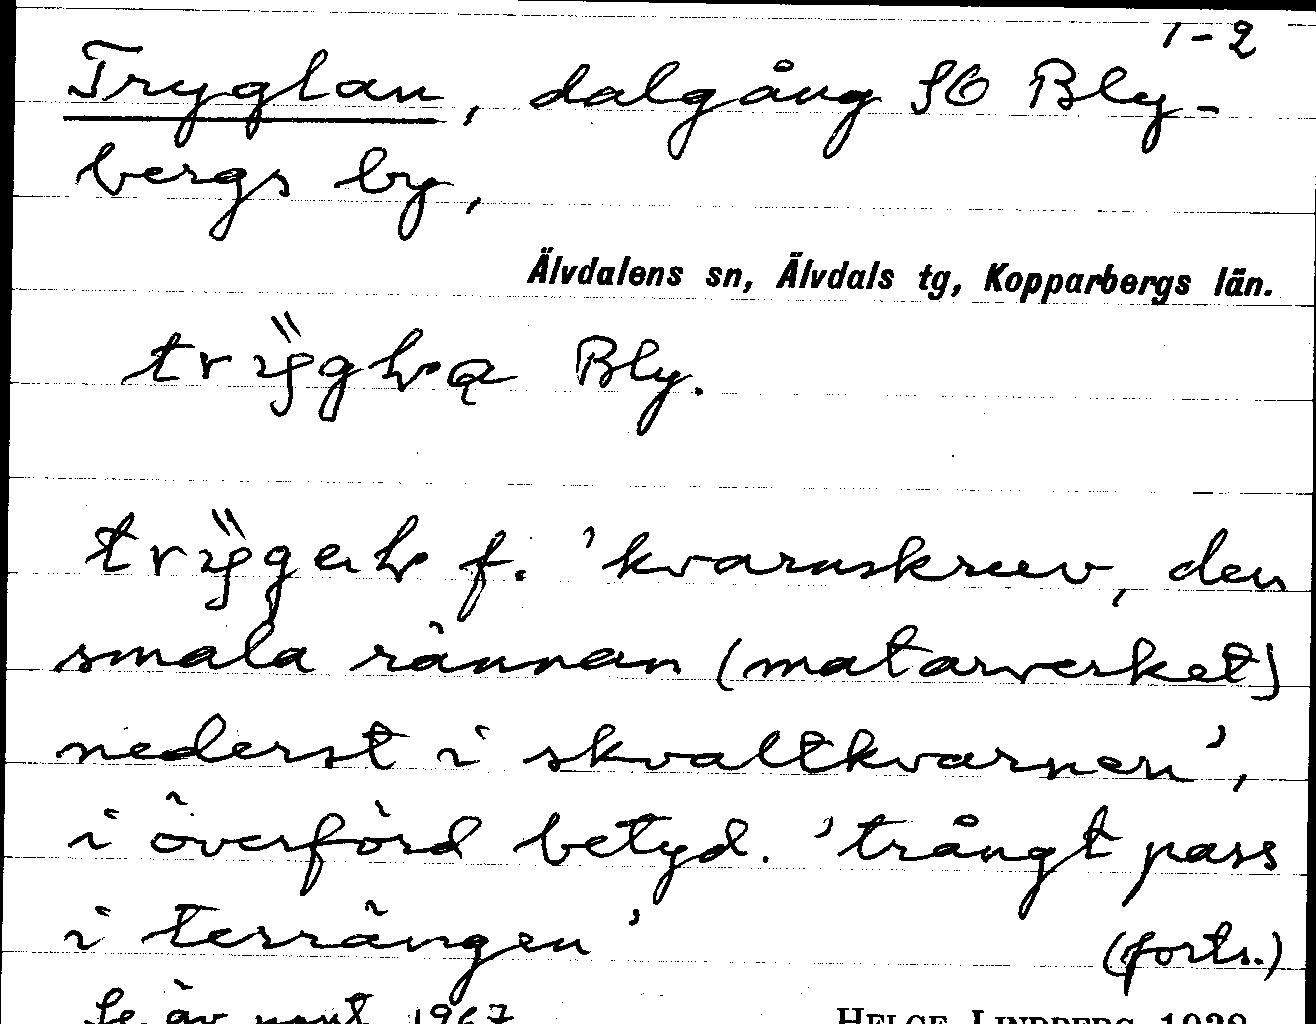 1-2
Tryglan, dalgång SO Bly-
bergs by,
Älvdalens sn, Älvdals tg, Kopparbergs län.
Bly.
f. 'kvarnskruv, den
smala rännan (matarverket)
nederst i skvaltkvarnen',
i överförd betyd. 'trångt pass
i terrängen'
(forts.)
Se äv. 1967
HELGE LINDBERG 1938